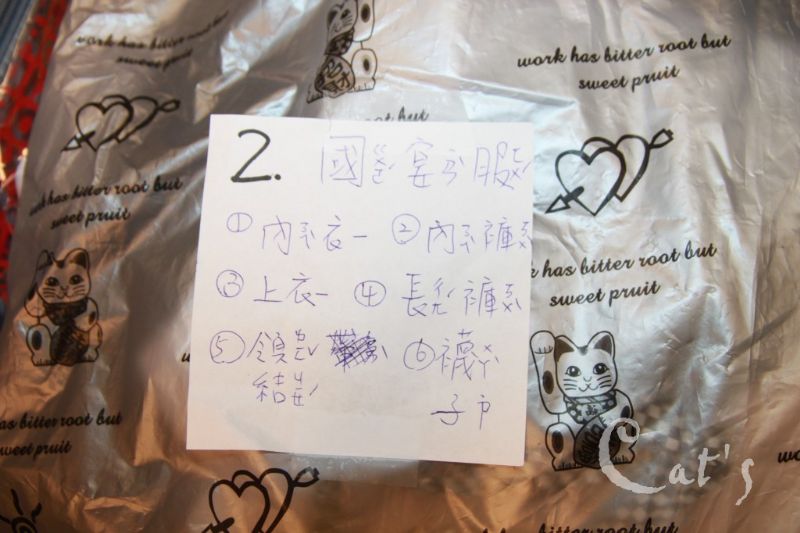 work has bitter root but
sweet pruit
work has bitter root but
sweet pruit
root but
work has bitter root but
sweet pruit
2. 國宴服
① 內衣 ② 內褲
③ 上衣 ④ 長褲
⑤ 領 ⑥ 襪
結 子
has bitter root but
sweet pruit
has bitter root but
sweet pruit
work has bitter root but
sweet pruit
wo
Cat's